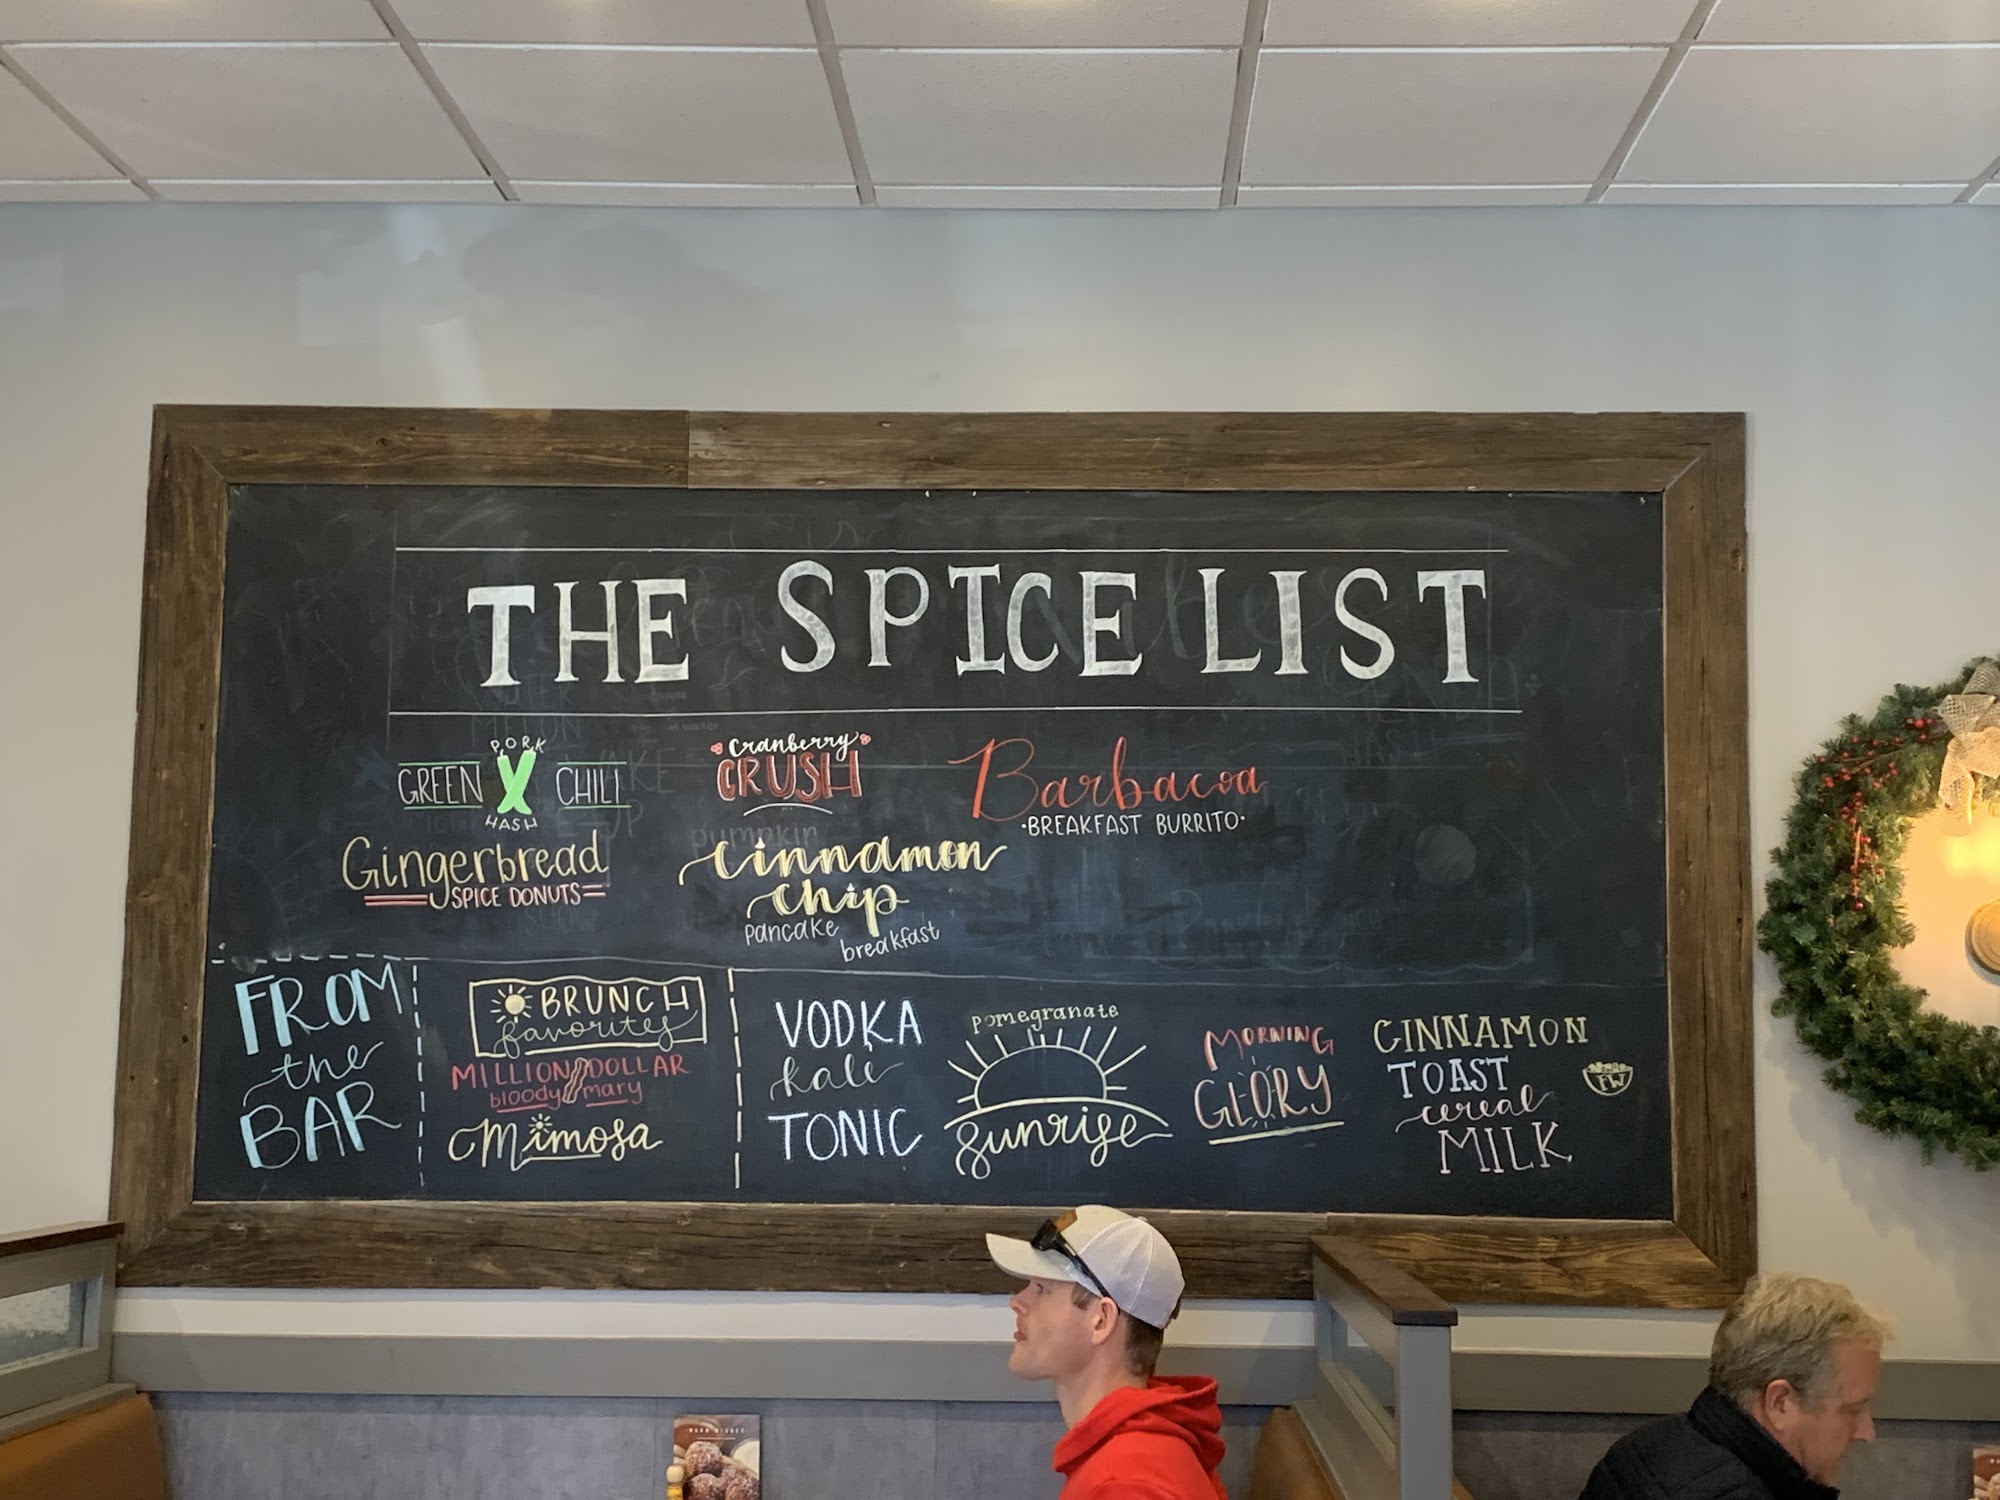 THE SPICE LIST
PORK
GREEN CHILI
HASH
Cranberry
CRUSH
Barbacoa
·BREAKFAST BURRITO·
Gingerbread
SPICE DONUTS
cinnamon
chip
pancake
breakfast
FROM
the
BAR
BRUNCH
favorites
MILLION DOLLAR
bloody mary
Mimosa
VODKA
kale
TONIC
pomegranate
sunrise
MORNING
GLORY
CINNAMON
TOAST
cereal
MILK
FW